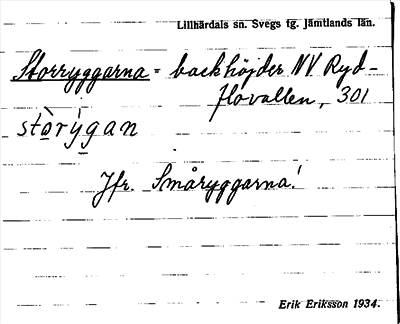 Lillhärdals sn. Svegs tg. Jämtlands län.
Storryggarna = backhöjder NV Ryd-
flovallen, 301
stòrýgan
Jfr. Småryggarna!
Erik Eriksson 1934.